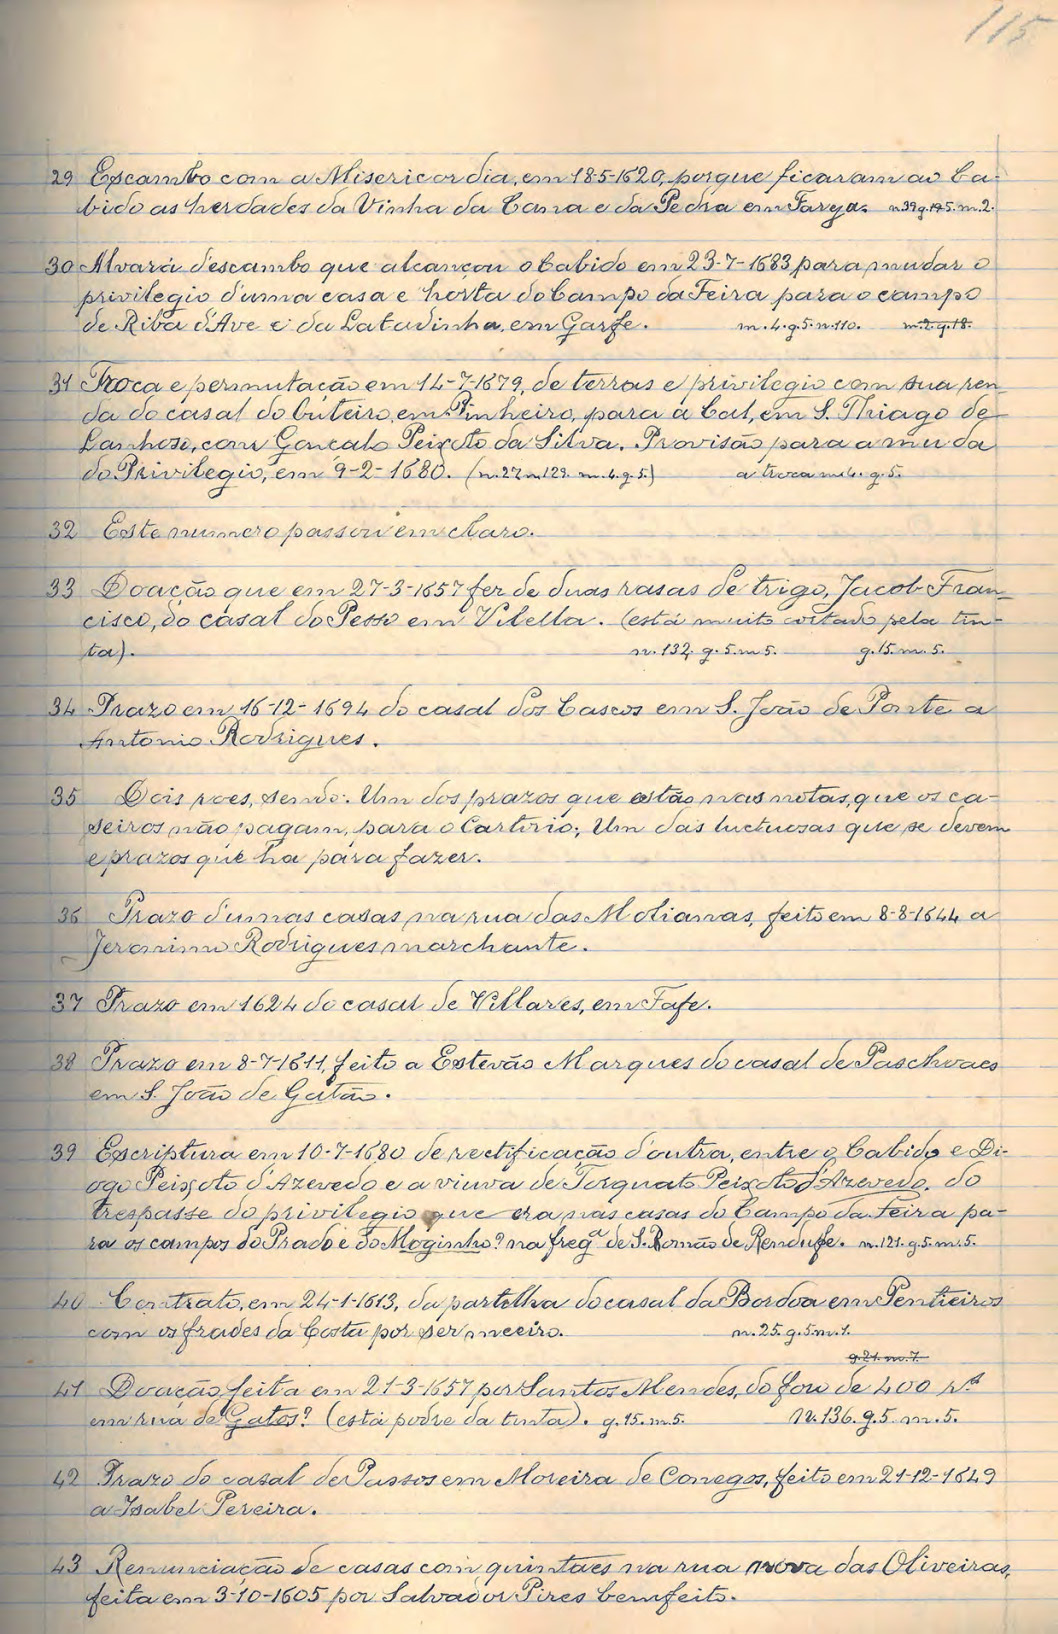 115
29 Escambo com a Misericordia, em 18-5-1620, porque ficaram ao Ca-
bido as herdades da Vinha da Cana e da Pedra em Farga. n 39 g. 5. m. 2.
30 Alvará d'escambo que alcançou o Cabido em 23-7-1683 para mudar o
privilegio d'uma casa e horta do Campo da Feira para o campo
de Riba d'Ave e da Latadinha, em Garfe. m. 4. g. 5. n. 110. m. 2. g. 18.
31 Troca e permutação em 14-7-1679, de terras e privilegio com sua ren-
da do casal do Outeiro, em Pinheiro, para a Cal, em S. Thiago de
Lanhoso, com Gonçalo Peixoto da Silva. Provisão para a muda
do Privilegio, em 9-2-1680. (n. 129. m. 4. g. 5.) a troca m. 4. g. 5.
32 Este numero passou em claro.
33 Doação que em 27-3-1657 fez de duas rasas de trigo, Jacob Fran-
cisco, do casal do Pesso em Vilella. (está muito cortado pela tin-
ta). n. 132. g. 5. m. 5. g. 15. m. 5.
34 Prazo em 16-12-1694 do casal dos Cascos em S. João de Ponte a
Antonio Rodrigues.
35 Dois roes, sendo: Um dos prazos que estão nas notas, que os ca-
seiros não pagam, para o Cartorio; Um das luctuosas que se devem
e prazos que ha para fazer.
36 Prazo d'umas casas na rua das Molianas, feito em 8-8-1644 a
Jeronimo Rodrigues marchante.
37 Prazo em 1624 do casal de Villares, em Fafe.
38 Prazo em 8-7-1611, feito a Estevão Marques do casal de Paschoaes
em S. João de Gatão.
39 Escriptura em 10-7-1680 de rectificação d'outra, entre o Cabido e Di-
ogo Peixoto d'Azevedo e a viuva de Torquato Peixoto d'Azevedo, do
trespasse do privilegio que era nas casas do Campo da Feira pa-
ra os campos do Prado e do Moginho? na fregª de S. Romão de Rendufe. n. 121. g. 5. m. 5.
40 Contrato, em 24-1-1613, da partilha do casal da Bordoa em Pentieiros
com os frades da Costa por ser meeiro. n. 25. g. 5. m. 1.
g. 21. m. 7.
41 Doação, feita em 21-3-1657 por Santos Mendes, do foro de 400 rs
em rua de Gatos? (está podre da tinta). g. 15. m. 5. N. 136. g. 5. m. 5.
42 Prazo do casal de Passos em Moreira de Conegos, feito em 21-12-1649
a Isabel Pereira.
43 Renunciação de casas com quintaes na rua nova das Oliveiras,
feita em 3-10-1605 por Salvador Pires bemfeito.